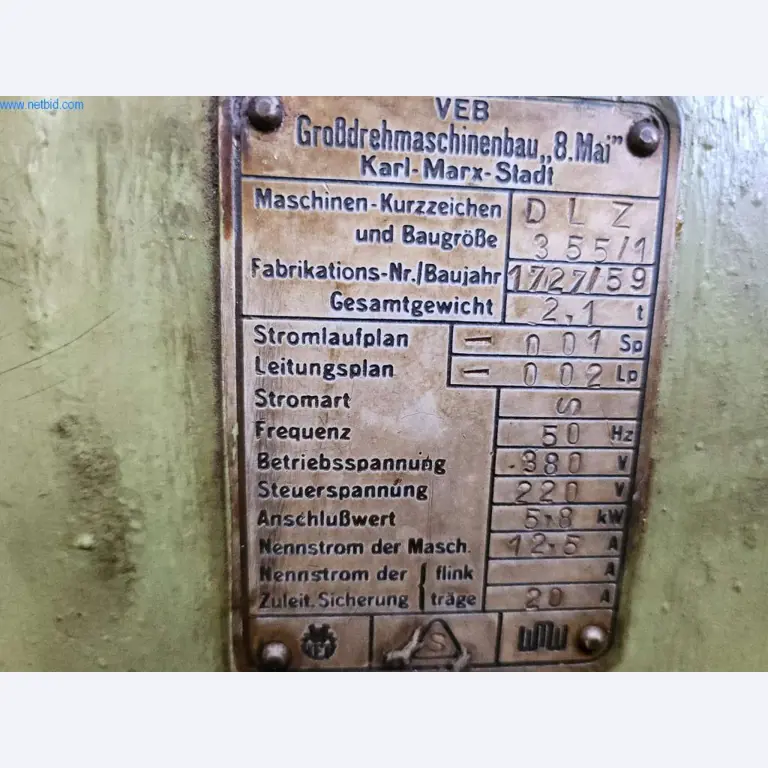 www.netbid.com
VEB
Großdrehmaschinenbau „8.Mai”
Karl-Marx-Stadt
Maschinen-Kurzzeichen D L Z
und Baugröße 355/1
Fabrikations-Nr./Baujahr 1727/59
Gesamtgewicht 2,1 t
Stromlaufplan — 001 Sp
Leitungsplan — 002 Lp
Stromart
Frequenz 50 Hz
Betriebsspannung 380 V
Steuerspannung 220 V
Anschlußwert 5,8 kW
Nennstrom der Masch. 12,5 A
Nennstrom der flink A
Zuleit. Sicherung träge 20 A
S WMW